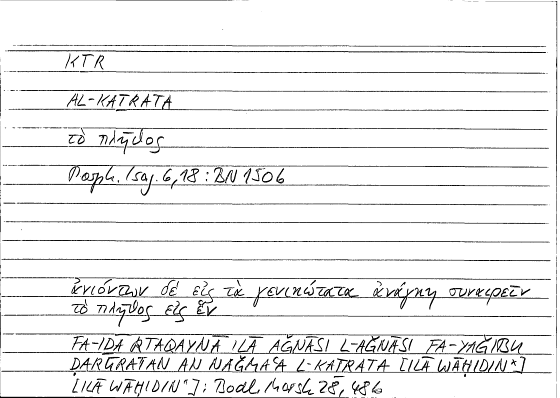 KṮR
AL-KAṮRATA
τὸ πλῆθος
Porph. Isag. 6,18 : BN 1506
ἀνιόντων δὲ εἰς τὰ γενικώτατα ἀνάγκη συναιρεῖν
τὸ πλῆθος εἰς ἕν
FA-IḎĀ RTAQAYNĀ ILĀ AǦNĀSI L-AǦNĀSI FA-YAǦIBU
ḌARŪRATAN AN NAǦMAʿA L-KAṮRATA [ILĀ WĀḤIDIN^]
[ILĀ WĀḤIDIN^]; Bodl. Marsh 28, 48b